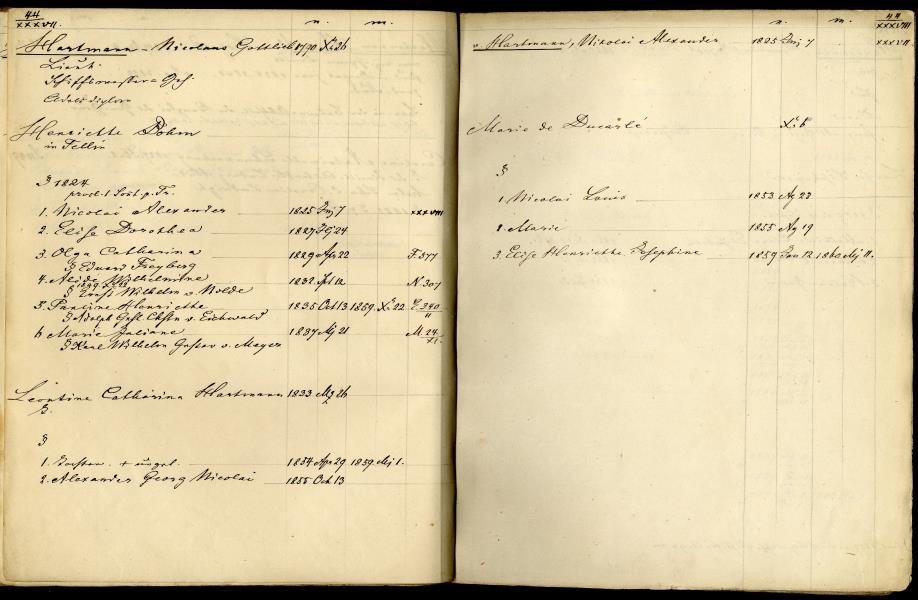 44
XXXVII.
n. m.
Hartmann - Nicolaus Gottlieb 1790 Xbr 26
Lieut.
Adelsdiplom
Henriette Dohm
in Fellin
§ 1824
1. Nicolai Alexander 1825 Juj 7 XXXVIII
2. Elise Dorothea 1827 24
3. Olga Catharina 1829 Apr 22 F. 577
§ Eduard Freyberg
4. Alide Wilhelmine 1832. 12 N. 307
§ Ernst Wilhelm v. Nolde
5. Pauline Henriette 1835 Oct 13 1859. Xbr 22 E. 340
§ Adolph v. Eichwald
6 Marie Juliane 1837 Mj 21 M. 24
XI.
§ Karl Wilhelm Gustav v. Mayer
Leontine Catharina Hartmann 1833 Mz 26
§.
§
1. + 1854 Apr 29 1859. Mj 1.
2. Alexander Georg Nicolai 1855 Oct 13
44
XXXVIII
n. m.
v. Hartmann, Nikolai Alexander 1825 Juj 7 XXXVII.
Marie de Xbr 6
§
1 Nicolai Louis 1853 Ag 23
2. Marie 1855 Ag 19
3. Elise Henriette Josephine 1859 Jan 12 1860 Mj 11.